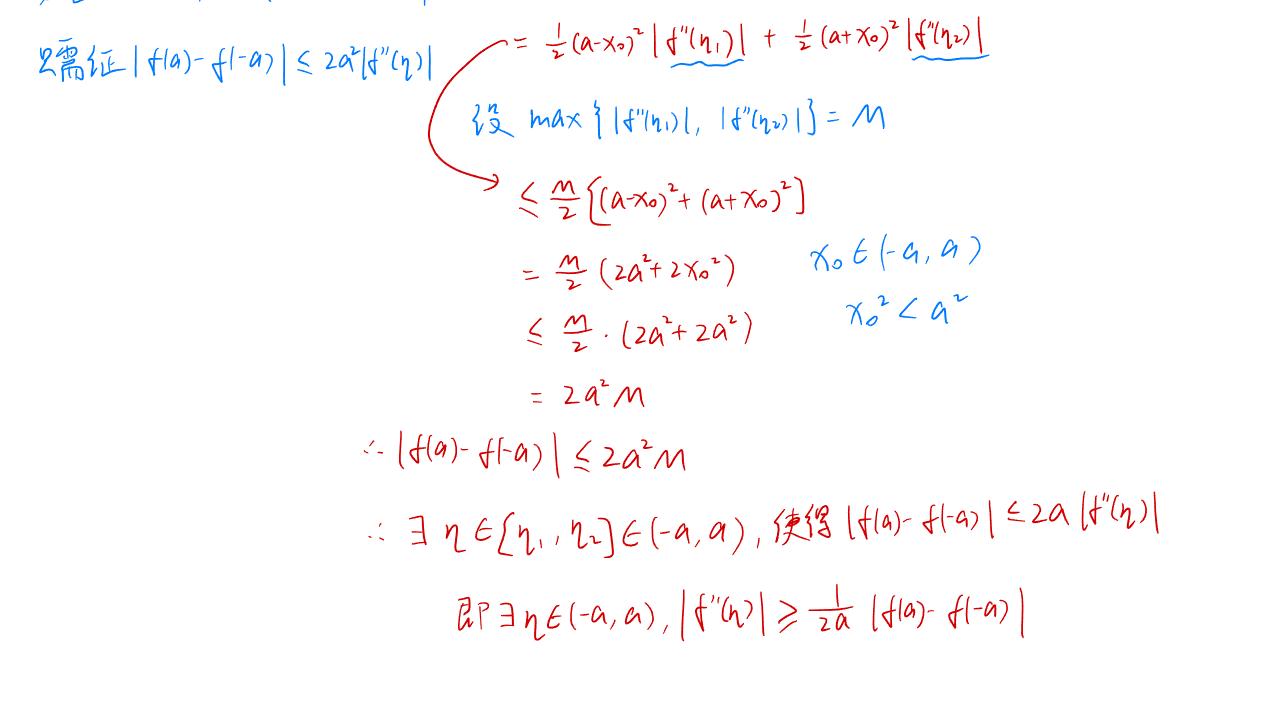 只需证 |f(a)-f(-a)| ≤ 2a²|f''(η)|
= 1/2 (a-x₀)² |f''(η₁)| + 1/2 (a+x₀)² |f''(η₂)|
设 max{|f''(η₁)|, |f''(η₂)|} = M
≤ M/2 [(a-x₀)² + (a+x₀)²]
= M/2 (2a²+2x₀²)
x₀ ∈ (-a, a)
≤ M/2 · (2a²+2a²)
x₀² < a²
= 2a²M
∴ |f(a)-f(-a)| ≤ 2a²M
∴ ∃ η ∈ [η₁, η₂] ∈ (-a, a), 使得 |f(a)-f(-a)| ≤ 2a |f''(η)|
即 ∃ η ∈ (-a, a), |f''(η)| ≥ 1/2a |f(a)-f(-a)|